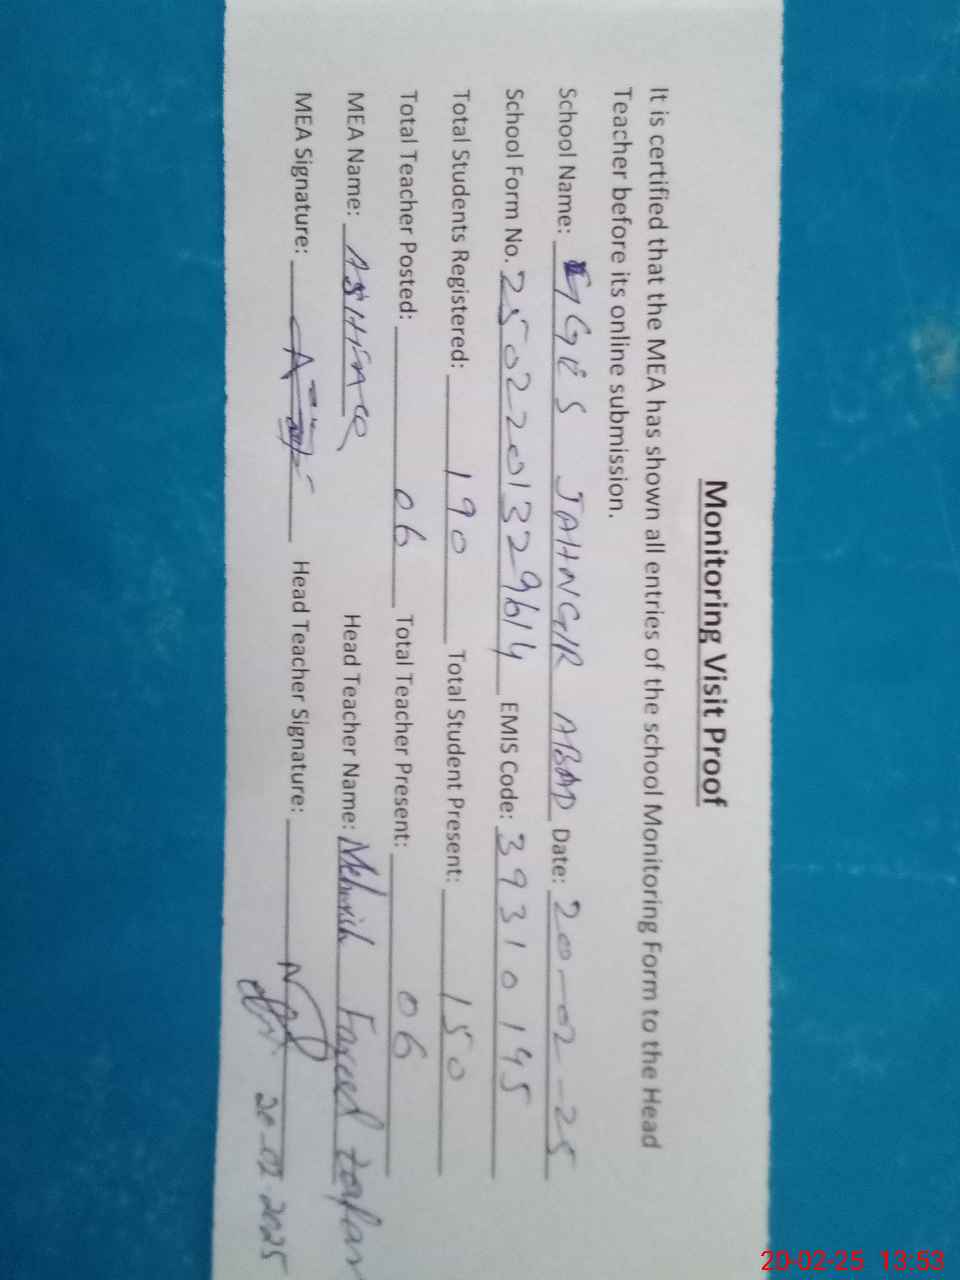 Monitoring Visit Proof
It is certified that the MEA has shown all entries of the school Monitoring Form to the Head
Teacher before its online submission.
School Name: GGES JAHNGIR ABAD Date: 20-02-25
School Form No. 2502201329614 EMIS Code: 39310145
Total Students Registered: 190 Total Student Present: 150
Total Teacher Posted: 06 Total Teacher Present: 06
MEA Name: Head Teacher Name: Mehwish Fareed
MEA Signature: Head Teacher Signature:
20-02-2025
20-02-25 13:53